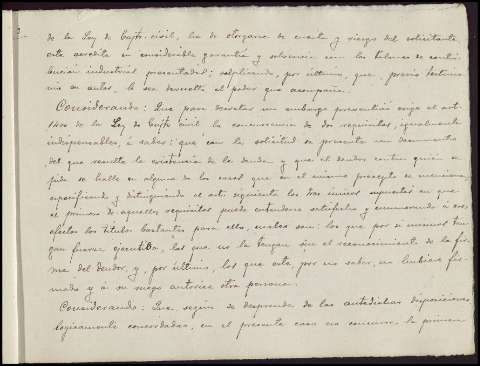 de la Ley de Enjto. civil, ha de otorgarse de cuenta y riesgo del solicitante,
este acredita su considerable garantía y solvencia con los talones de contri-
bución industrial presentados; suplicando, por último, que, previo testimo-
nio en autos, le sea devuelto el poder que acompaña.
Considerando: Que para decretar un embargo preventivo exige el artº
1400 de la Ley de Enjto civil la concurrencia de dos requisitos, igualmente
indispensables, á saber: que con la solicitud se presente un documento
del que resulte la existencia de la deuda y que el deudor contra quien se
pida se halle en alguno de los casos que en el mismo precepto se mencionan,
especificando y distinguiendo el artº siguiente los tres únicos supuestos en que
el primero de aquellos requisitos puede entenderse satisfecho y enumerando á esos
efectos los títulos bastantes para ello, cuales son: los que por sí mismos ten-
gan fuerza ejecutiva, los que no la tengan sin el reconocimiento de la fir-
ma del deudor, y, por último, los que este por no saber, no hubiera fir-
mado y á su ruego autorice otra persona.
Considerando: Que, según se desprende de las antedichas disposiciones
lógicamente concordadas, en el presente caso no concurre la primera